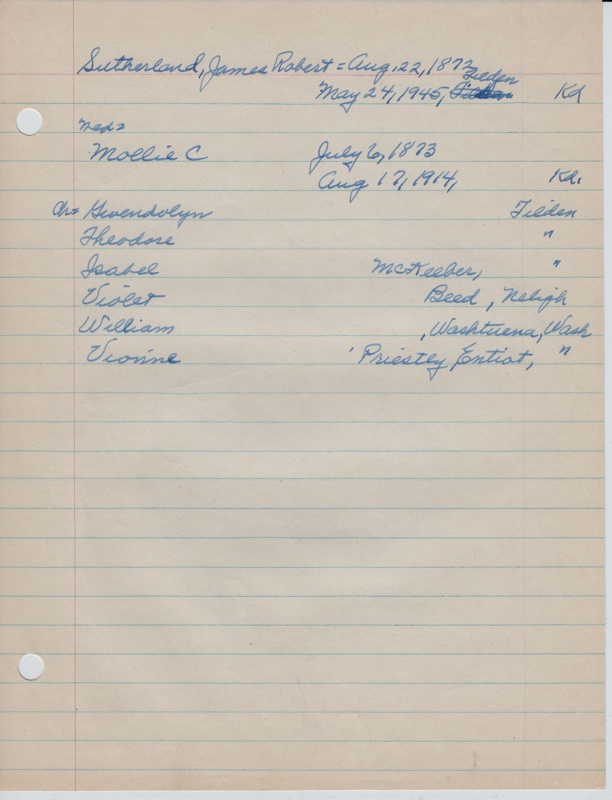 Sutherland, James Robert = Aug. 22, 1872
Tilden
May 24, 1945, Kd
med =
Mollie C July 6, 1873
Aug 17, 1914, Kd.
Ch = Gwendolyn Tilden
Theodore "
Isabel McKeeber, "
Violet Beed, Neligh
William , Washtucna, Wash
Vionne Priestly Entiat, "